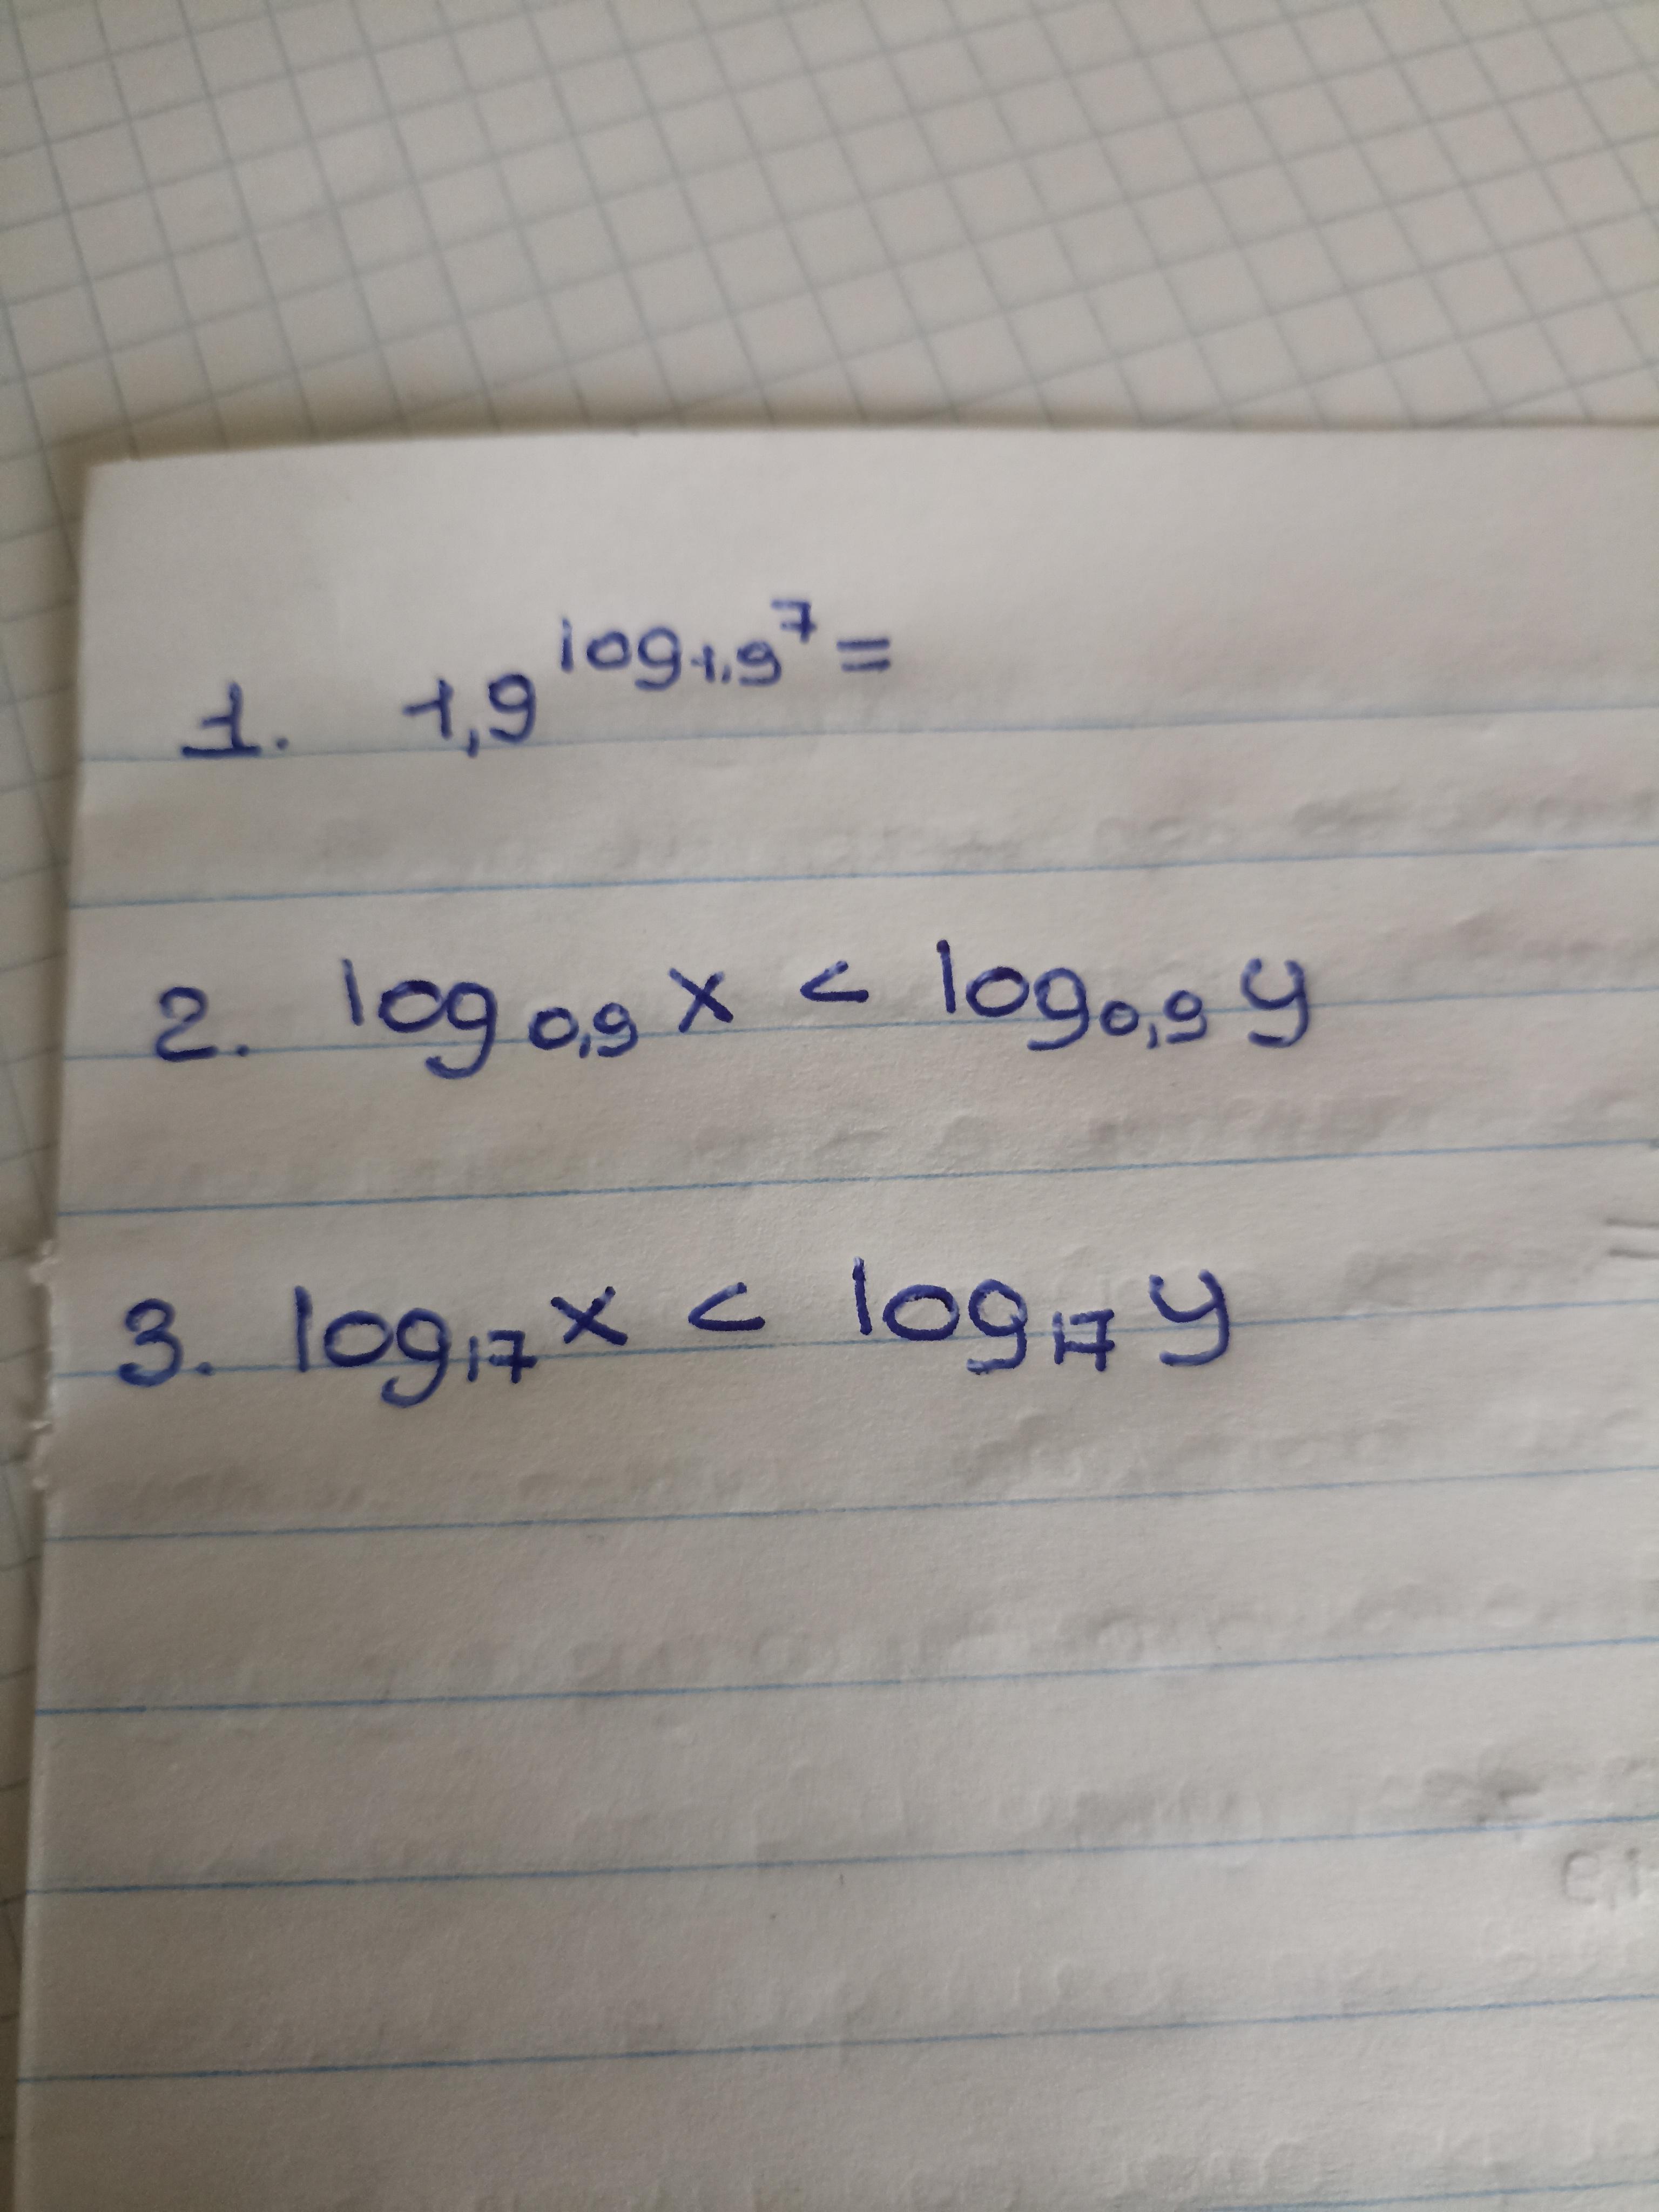 1. 1,9^log₁,₉7 =
2. log₀,₉ x < log₀,₉ y
3. log₁₇ x < log₁₇ y